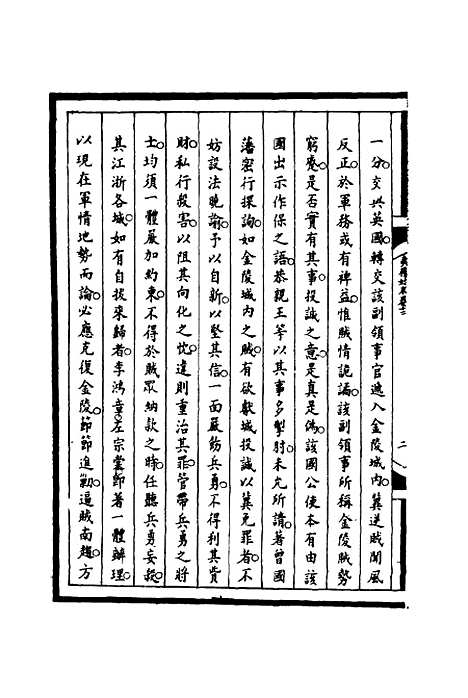 一分。交與英國。轉交該副領事官遞入金陵城内。冀逆賊聞風
反正。於軍務或有裨益。惟賊情詭譎。該副領事所稱金陵賊勢
窮蹙。是否實有其事。投誠之意。是真是偽。該國公使本有由該
國出示作保之語。恭親王等以其事多掣肘。未允所請。著曾國
藩密行探詢。如金陵城内之賊。有欲獻城投誠以冀免罪者。不
妨設法曉諭。予以自新。以堅其信。一面嚴飭兵勇。不得利其貲
財。私行殺害。以阻其向化之忱。違則重治其罪。管帶兵勇之將
士。均須一體嚴加約束。不得於賊眾納款之時。任聽兵勇妄殺。
其江浙各城。如有自拔來歸者。李鴻章。左宗棠。即著一體辦理。
以現在軍情地勢而論。必應克復金陵。節節進勦。逼賊南趨。方
二